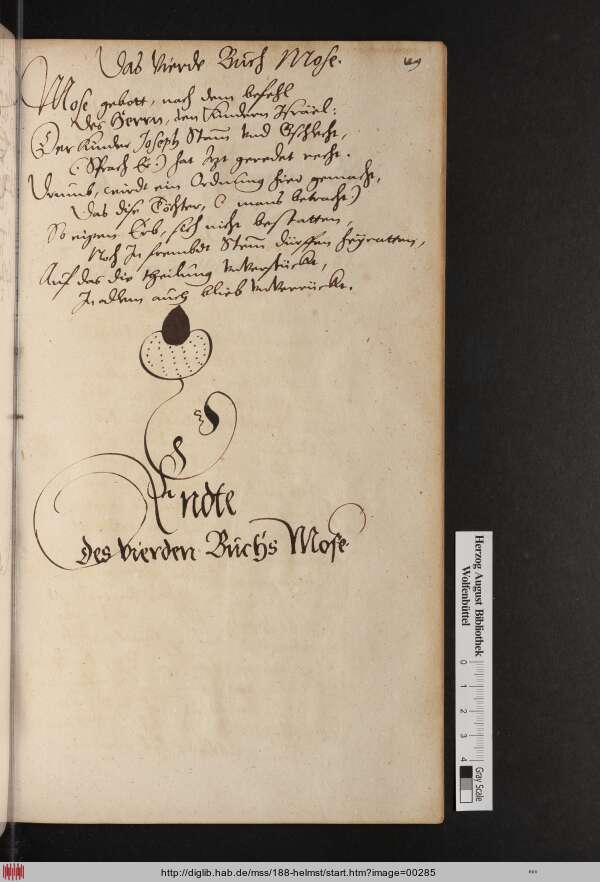 Das Vierde Buch Mose.
Mose gebott, nach dem befehl
Des Herrn, den Kindern Israël:
Der Kinder Joseph Stam̅ Vnd Gschlecht,
(Sprach Er:) hat Jtzt geredet recht.
Drumb, wirdt ein Ordnung hier gemacht,
Das dise Töchter, (mans betracht)
So eigen Erb, sich nicht bestatten,
Noch Jn frembdt Stam̅ dürffen heyratten,
Auf das die theilung vnverstückt,
In allem auch blieb vnverrückt.
Endte
des vierden Buchs Mose.
Herzog August Bibliothek
Wolfenbüttel
0 1 2 3 4
Gray Scale
http://diglib.hab.de/mss/188-helmst/start.htm?image=00285